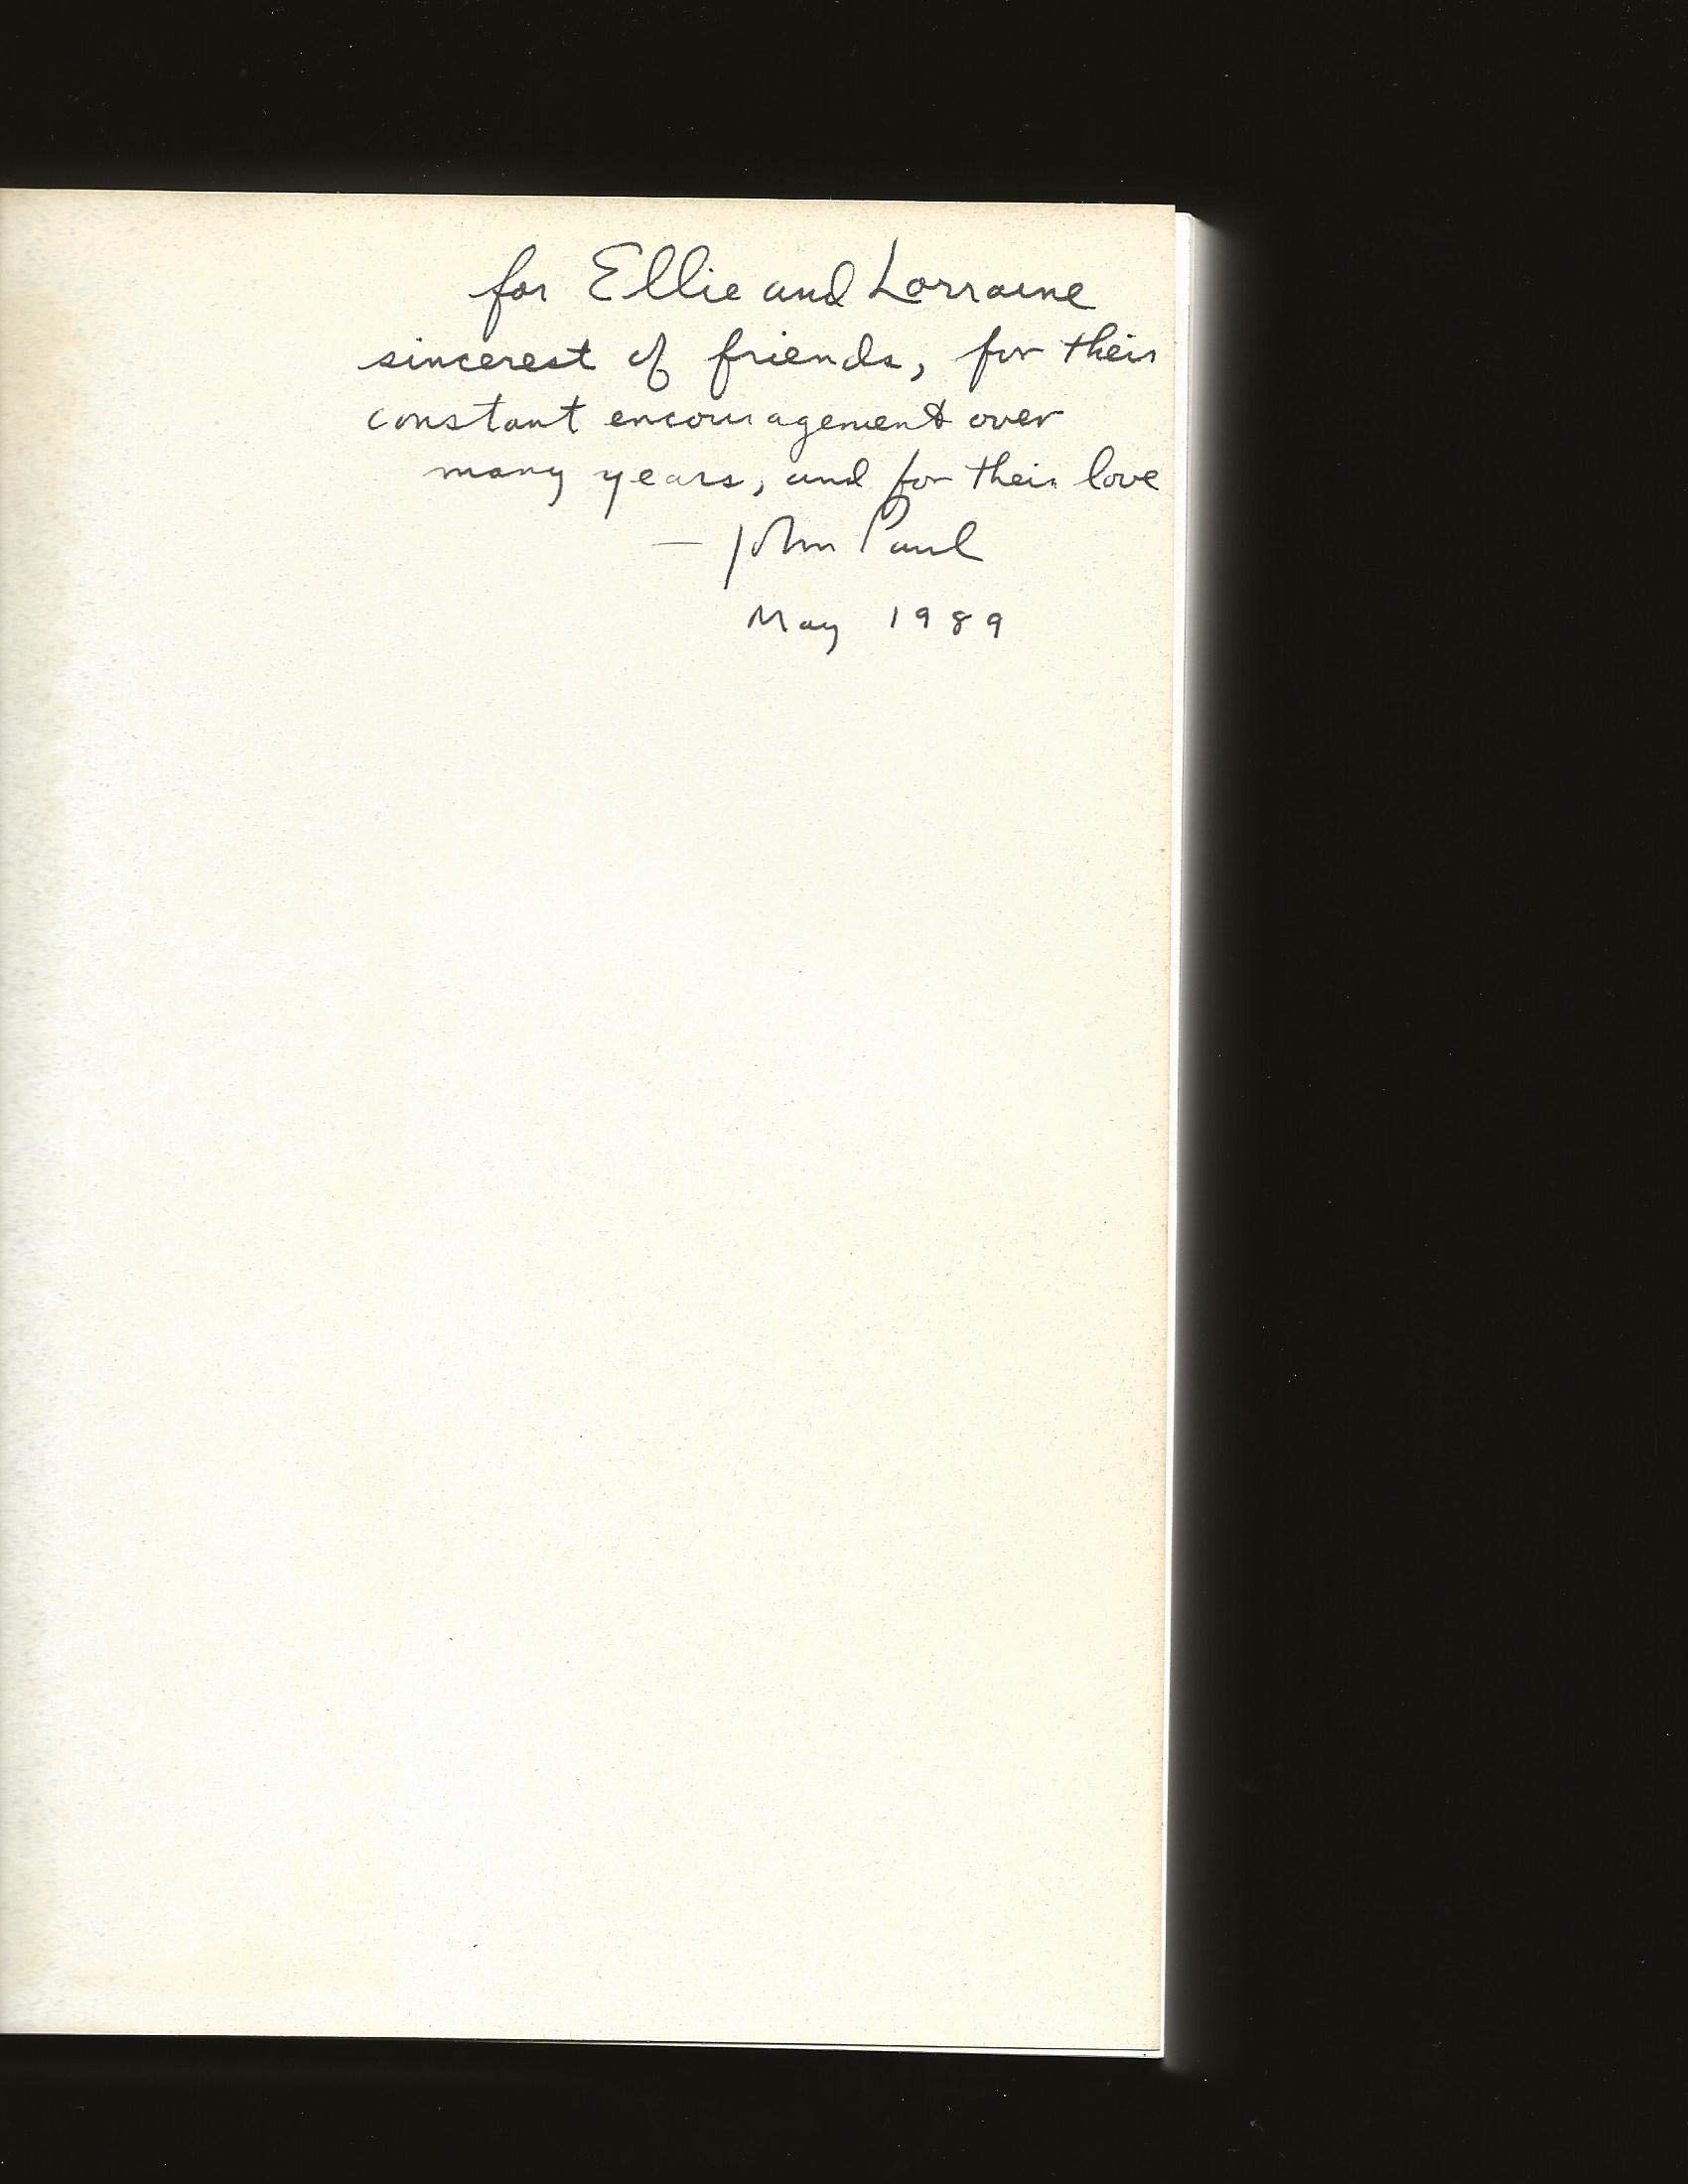 for Ellie and Lorraine
sincerest of friends, for their
constant encouragement over
many years, and for their love
— John Paul
May 1989